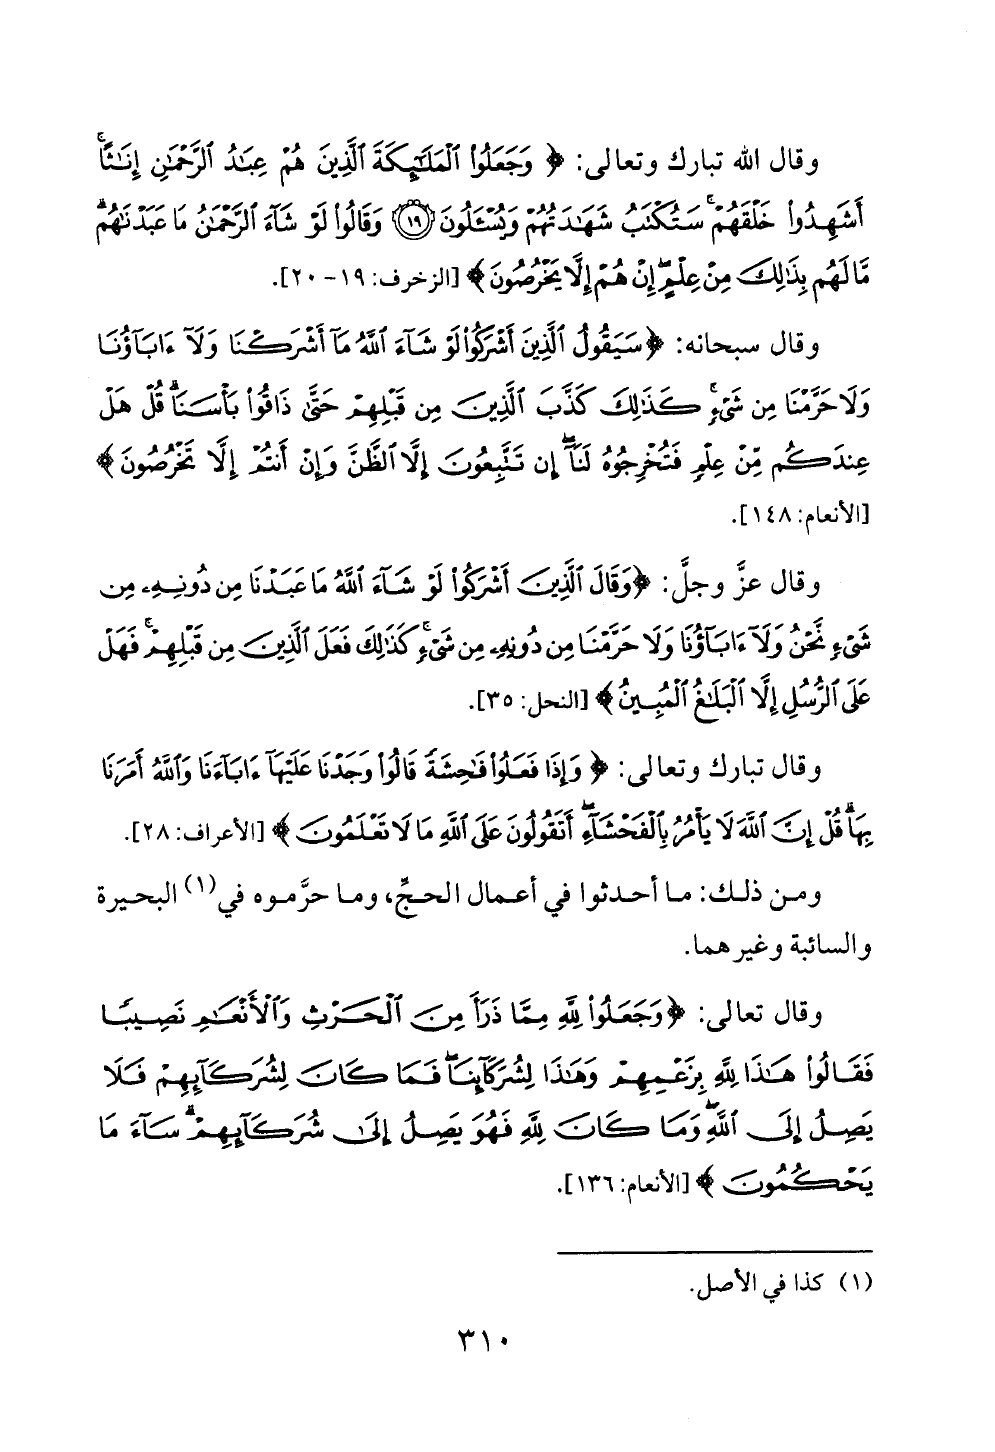 وقال الله تبارك وتعالى: ﴿ وَجَعَلُوا۟ ٱلْمَلَـٰٓئِكَةَ ٱلَّذِينَ هُمْ عِبَـٰدُ ٱلرَّحْمَـٰنِ إِنَـٰثًا ۚ
أَشَهِدُوا۟ خَلْقَهُمْ ۚ سَتُكْتَبُ شَهَـٰدَتُهُمْ وَيُسْـَٔلُونَ ١٩ وَقَالُوا۟ لَوْ شَآءَ ٱلرَّحْمَـٰنُ مَا عَبَدْنَـٰهُم ۗ
مَّا لَهُم بِذَٰلِكَ مِنْ عِلْمٍ ۖ إِنْ هُمْ إِلَّا يَخْرُصُونَ ﴾ [الزخرف: ١٩-٢٠].
وقال سبحانه: ﴿ سَيَقُولُ ٱلَّذِينَ أَشْرَكُوا۟ لَوْ شَآءَ ٱللَّهُ مَآ أَشْرَكْنَا وَلَآ ءَابَآؤُنَا
وَلَا حَرَّمْنَا مِن شَىْءٍ ۚ كَذَٰلِكَ كَذَّبَ ٱلَّذِينَ مِن قَبْلِهِمْ حَتَّىٰ ذَاقُوا۟ بَأْسَنَا ۗ قُلْ هَلْ
عِندَكُم مِّنْ عِلْمٍ فَتُخْرِجُوهُ لَنَآ ۖ إِن تَتَّبِعُونَ إِلَّا ٱلظَّنَّ وَإِنْ أَنتُمْ إِلَّا تَخْرُصُونَ ﴾
[الأنعام: ١٤٨].
وقال عزَّ وجلَّ: ﴿ وَقَالَ ٱلَّذِينَ أَشْرَكُوا۟ لَوْ شَآءَ ٱللَّهُ مَا عَبَدْنَا مِن دُونِهِۦ مِن
شَىْءٍ نَّحْنُ وَلَآ ءَابَآؤُنَا وَلَا حَرَّمْنَا مِن دُونِهِۦ مِن شَىْءٍ ۚ كَذَٰلِكَ فَعَلَ ٱلَّذِينَ مِن قَبْلِهِمْ ۚ فَهَلْ
عَلَى ٱلرُّسُلِ إِلَّا ٱلْبَلَـٰغُ ٱلْمُبِينُ ﴾ [النحل: ٣٥].
وقال تبارك وتعالى: ﴿ وَإِذَا فَعَلُوا۟ فَـٰحِشَةً قَالُوا۟ وَجَدْنَا عَلَيْهَآ ءَابَآءَنَا وَٱللَّهُ أَمَرَنَا
بِهَا ۗ قُلْ إِنَّ ٱللَّهَ لَا يَأْمُرُ بِٱلْفَحْشَآءِ ۖ أَتَقُولُونَ عَلَى ٱللَّهِ مَا لَا تَعْلَمُونَ ﴾ [الأعراف: ٢٨].
ومن ذلك: ما أحدثوا في أعمال الحجِّ، وما حرَّموه في(١) البحيرة
والسائبة وغيرهما.
وقال تعالى: ﴿ وَجَعَلُوا۟ لِلَّهِ مِمَّا ذَرَأَ مِنَ ٱلْحَرْثِ وَٱلْأَنْعَـٰمِ نَصِيبًا
فَقَالُوا۟ هَـٰذَا لِلَّهِ بِزَعْمِهِمْ وَهَـٰذَا لِشُرَكَآئِنَا ۖ فَمَا كَانَ لِشُرَكَآئِهِمْ فَلَا
يَصِلُ إِلَى ٱللَّهِ ۖ وَمَا كَانَ لِلَّهِ فَهُوَ يَصِلُ إِلَىٰ شُرَكَآئِهِمْ ۗ سَآءَ مَا
يَحْكُمُونَ ﴾ [الأنعام: ١٣٦].
(١) كذا في الأصل.
٣١٠